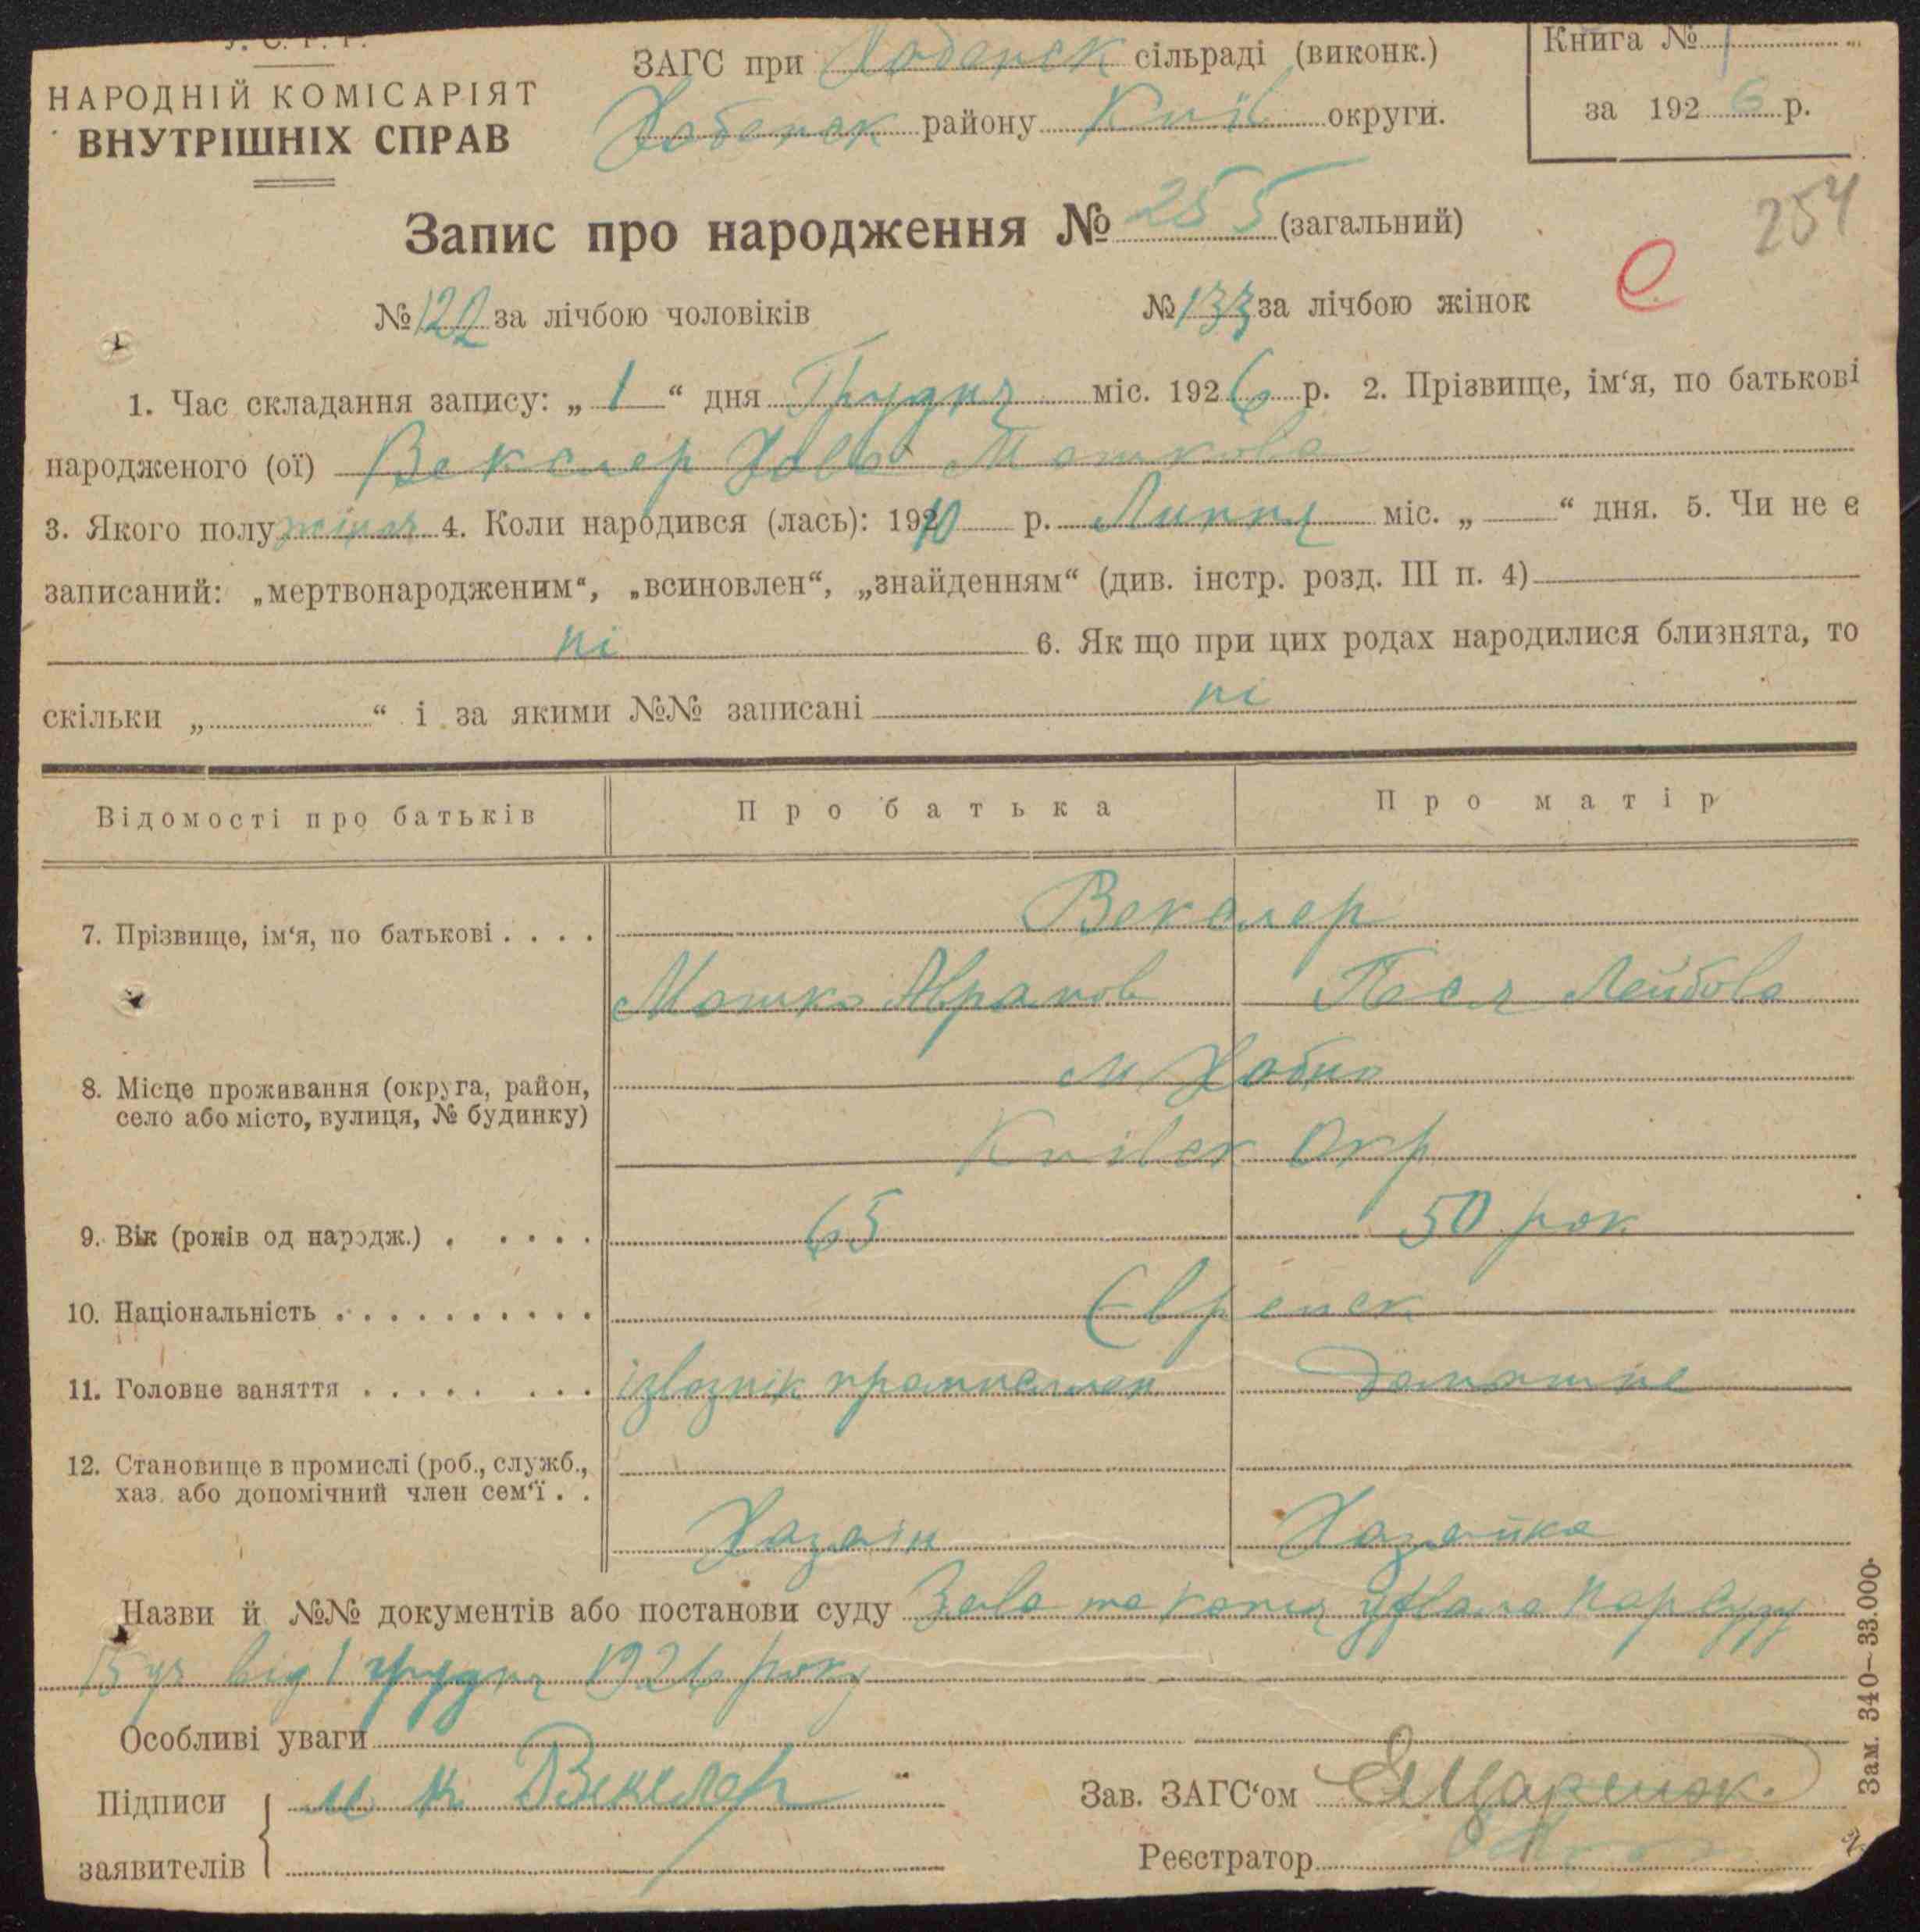 У. С. Р. Р.
НАРОДНІЙ КОМІСАРІЯТ
ВНУТРІШНІХ СПРАВ
ЗАГС при Хабенск сільраді (виконк.)
Хабенск району Київ округи.
Книга № 1
за 1926 р.
Запис про народження № 255 (загальний)
254
№ 122 за лічбою чоловіків
№ 133 за лічбою жінок
1. Час складання запису: „ 1 “ дня Грудня міс. 1926 р. 2. Прізвище, ім‘я, по батькові
народженого (ої) Векслер Мошкова
3. Якого полу жіноч 4. Коли народився (лась): 1910 р. Липня міс. „ — “ дня. 5. Чи не є
записаний: „мертвонародженим“, „всиновлен“, „знайденням“ (див. інстр. розд. III п. 4)
ні 6. Як що при цих родах народилися близнята, то
скільки „ “ і за якими №№ записані ні
Відомості про батьків Про батька Про матір
7. Прізвище, ім‘я, по батькові . . . . Векслер
Мошко Абрамов Песя Лейбова
8. Місце проживання (округа, район, м Хабно
село або місто, вулиця, № будинку)
Київск Окр
9. Вік (років од народж.) . . . . . 65 50 рок
10. Національність . . . . . . . . . . Еврейск
11. Головне заняття . . . . . . . . ізвознік домашне
12. Становище в промислі (роб., служб.,
хаз. або допомічний член сем‘ї . .
Хазаін Хазяйка
Назви й №№ документів або постанови суду Заява та копія Нарсуду
15 уч від 1 грудня 1926 року
Особливі уваги
Підписи Векслер
заявителів
Зав. ЗАГС‘ом
Реєстратор
Зам. 340—33.000.